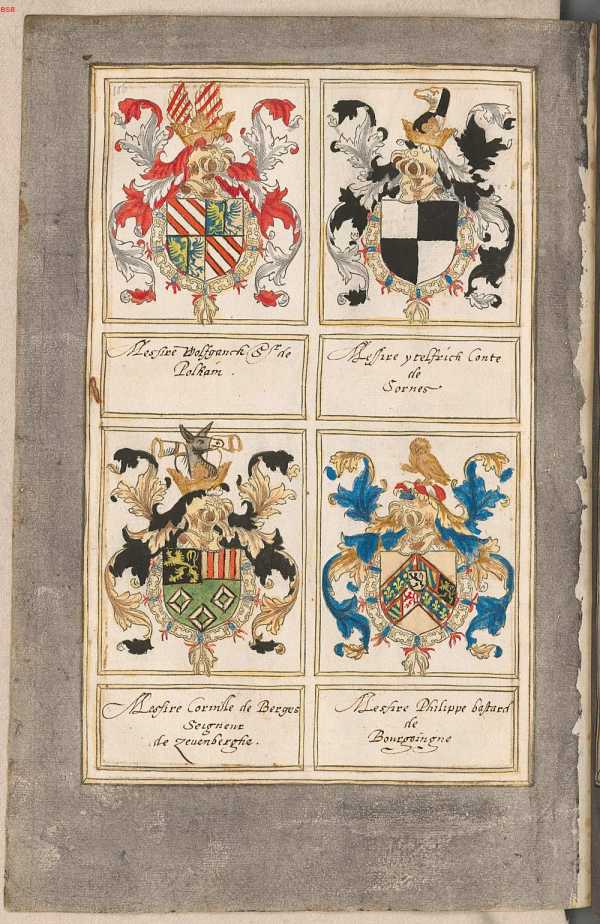 BSB
106
Messire Wolfganck Sr de
Polhain.
Messire ytelfrich Conte
de
Sornes
Messire Cornille de Berges
Seigneur
de zevenberghe.
Messire Philippe bastard
de
Bourgoingne